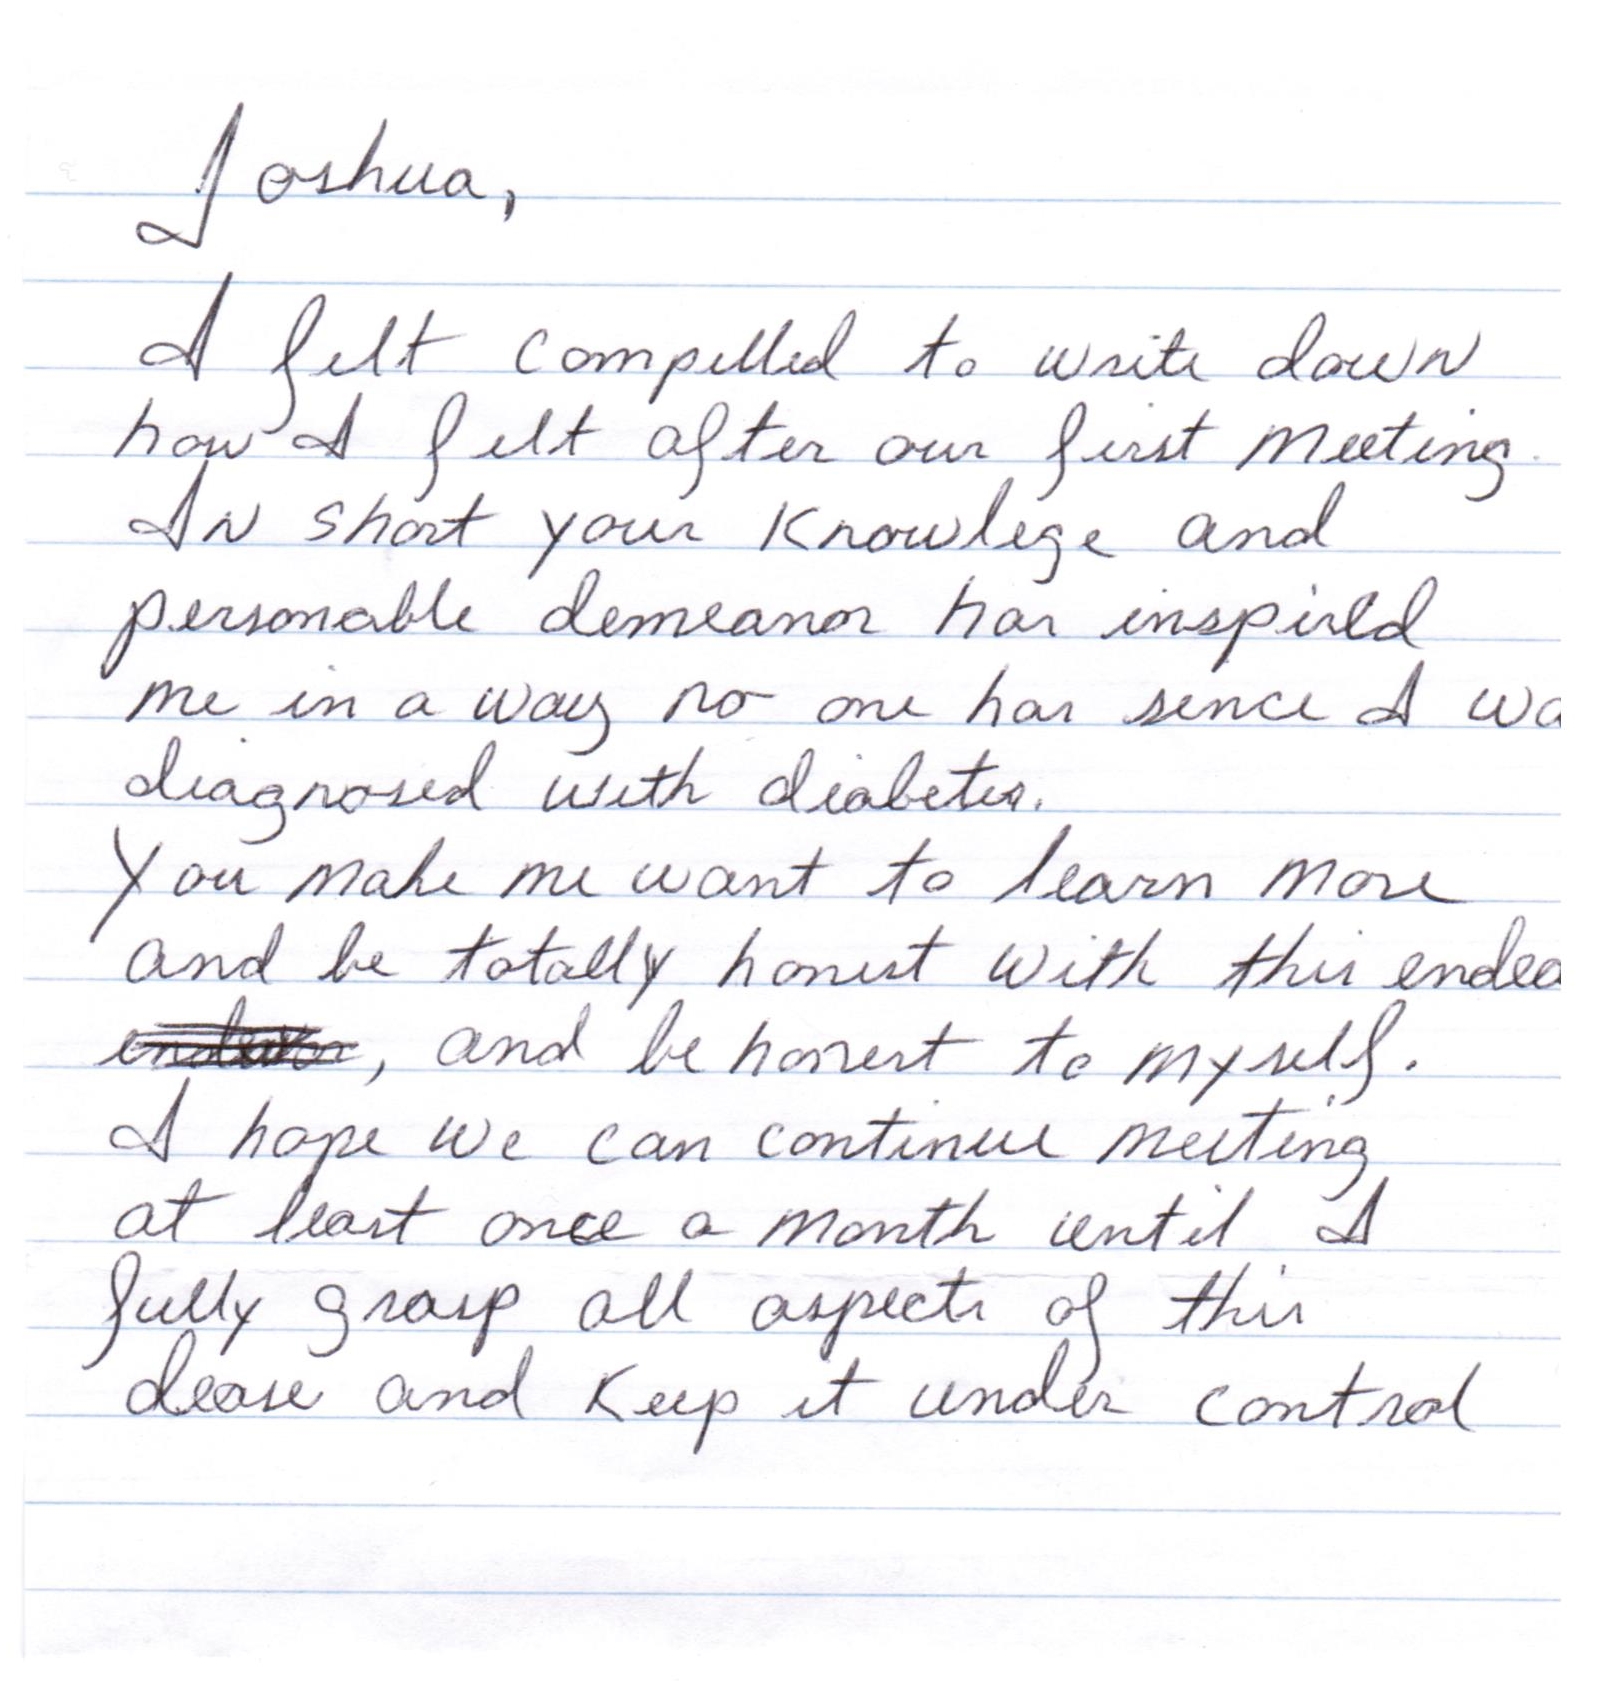 Joshua,
I felt compelled to write down
how I felt after our first meeting.
In short your knowlege and
personable demeanor has inspired
me in a way no one has sence I wa
diagnosed with diabetes.
You make me want to learn more
and be totally honest with this endea
, and be honest to myself.
I hope we can continue meeting
at least once a month until I
fully grasp all aspects of this
dease and keep it under control